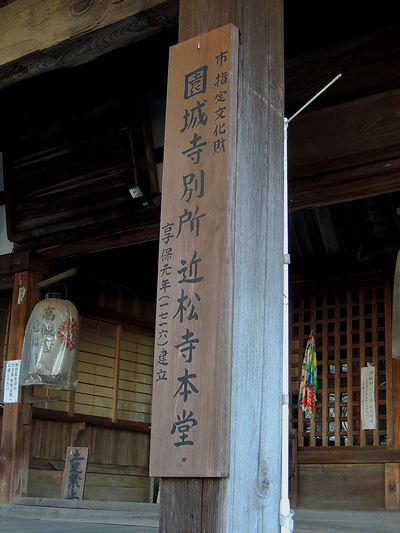 市指定文化財
園城寺別所 近松寺本堂
享保元年(一七一六)建立